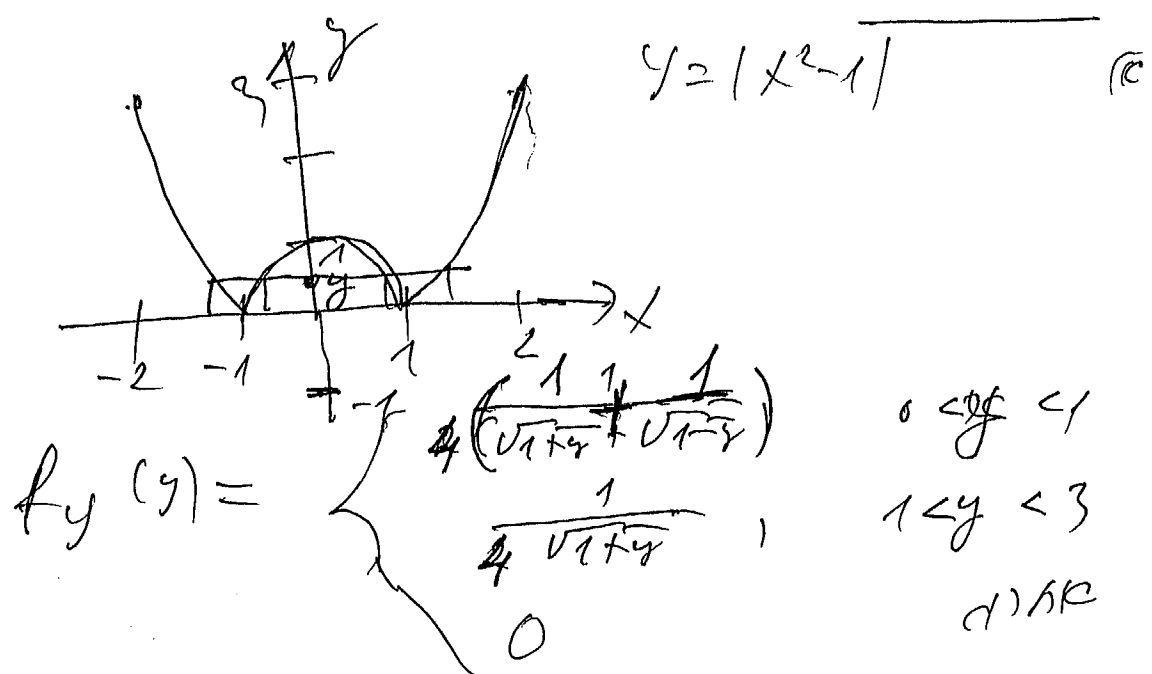 y = |x²-1| א
3 y
1
y
-2 -1 1 2 x
-1
f_y (y) = { 1/4 (1/√(1+y) + 1/√(1-y)) 0 < y < 1
1/(4√(1+y)) , 1 < y < 3
0 אחרת